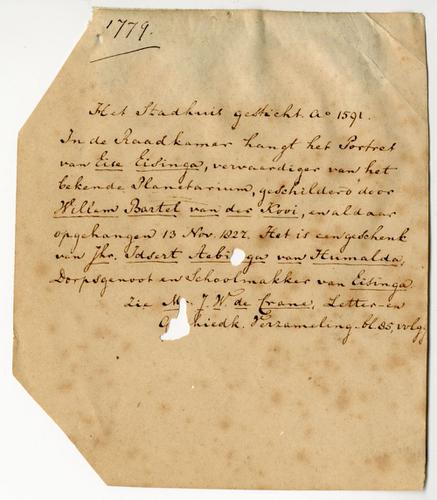 1779.
Het Stadhuit gesticht. Ao 1591.
In de Raadkamer hangt het Portret
van Eise Eisinga, vervaardiger van het
bekende Planetarium, geschilderd door
Willem Bartel van der Kooi, en aldaar
opgehangen 13 Nov. 1827. Het is een geschenk
van Jhr. Idsert Aebi ga van Humalda,
Dorpsgenoot en Schoolmakker van Eisinga.
zie Mr. J. W. de Crane, Letter- en
G hiedk. Verzameling. bl. 85, volg.